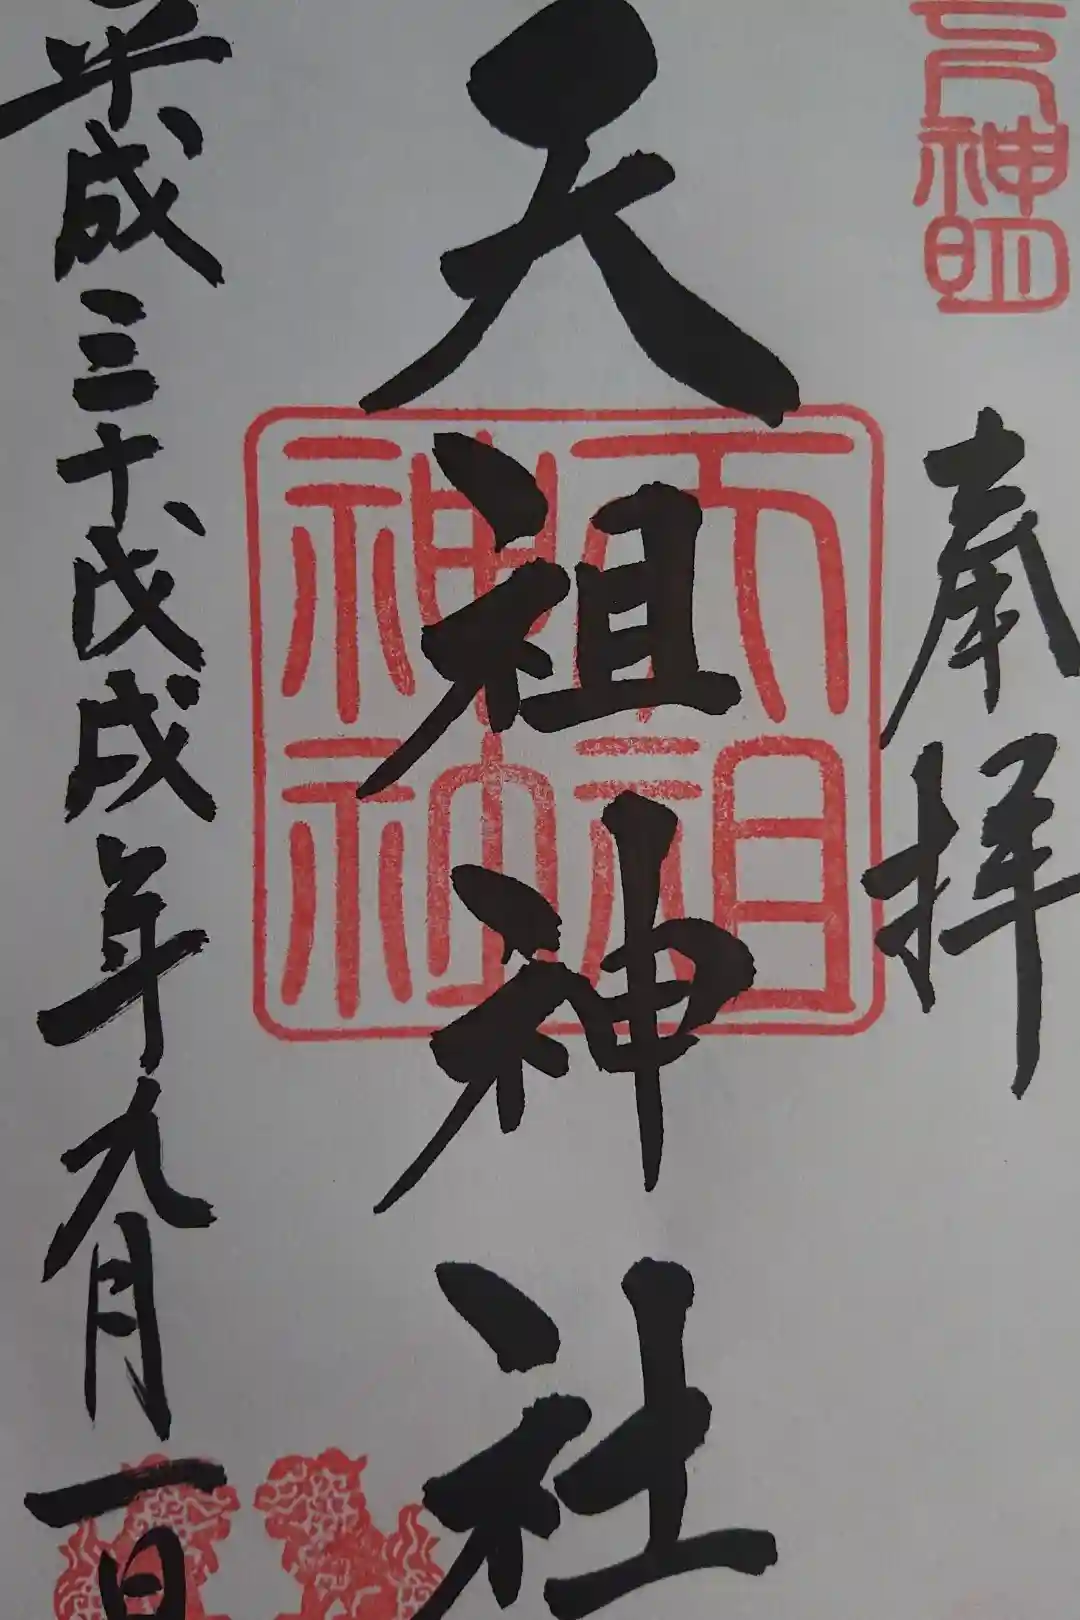 元神明
奉拝
天祖神社
天祖神社
平成三十戊戌年九月一日